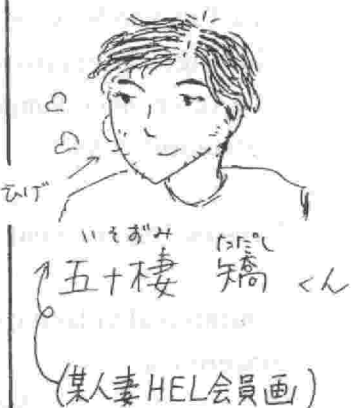 ひげ
いそずみ ただし
五十棲 矯 くん
(某人妻HEL会員画)